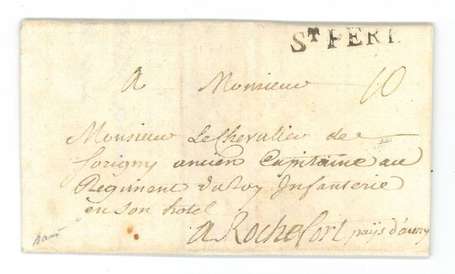 ST PERE
a Monsieur 10
Monsieur Le Chevalier de
Lorigny ancien Capitaine au
Régiment du Roy Infanterie
en son hotel
a Rochefort pays d'auny